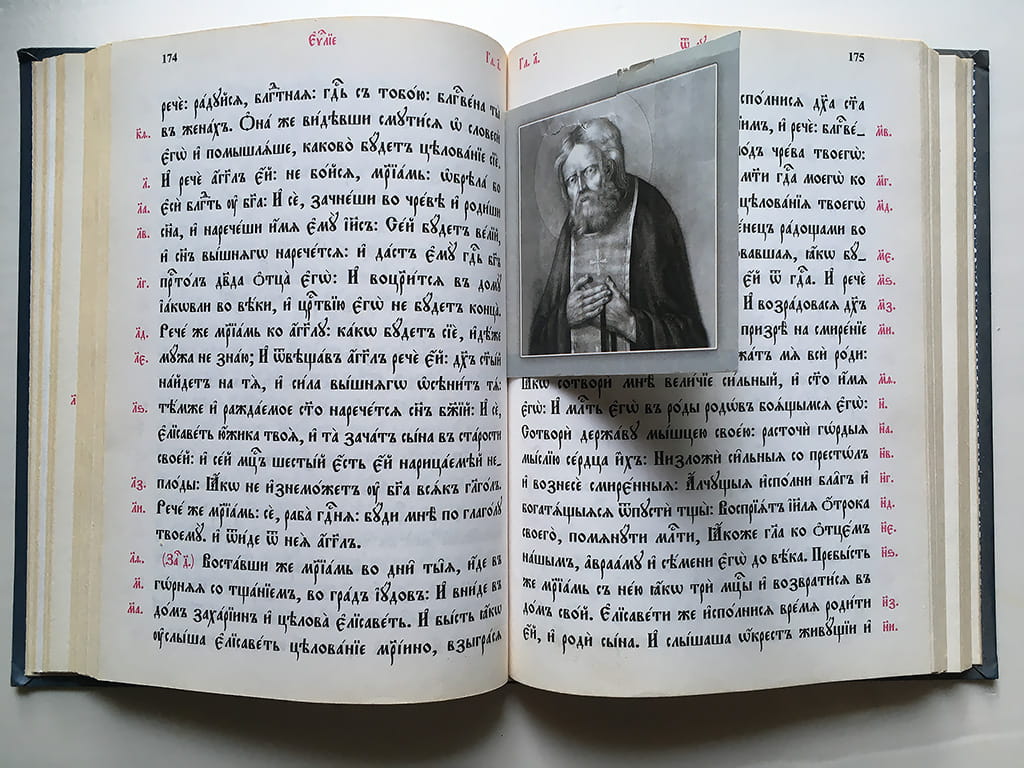 174
Є҆ѵⷢ҇лїе
Гл. а҃.
речѐ: ра́дꙋйсѧ, блгⷣтнаѧ: гдⷭ҇ь съ тобо́ю: блгⷭ҇ве́на ты̀
къ҃и. въ жена́хъ. Ѻ҆на́ же ви́дѣвши смꙋти́сѧ ѡ҆ словесѝ
є҆гѡ̀ и҆ помышлѧ́ше, каково̀ бꙋ́детъ цѣлова́нїе сїѐ.
л҃. И҆ речѐ а҆́гг҃лъ є҆́й: не бо́йсѧ, мр҃їа́мь: ѡ҆брѣла́ бо
л҃а. є҆сѝ блгⷣть ᲂу҆ бг҃а: И҆ сѐ, зачне́ши во чре́вѣ и҆ роди́ши
л҃в. сн҃а, и҆ нарече́ши и҆́мѧ є҆мꙋ̀ і҆и҃съ: Се́й бꙋ́детъ ве́лїй,
и҆ сн҃ъ вы́шнѧгѡ нарече́тсѧ: и҆ да́стъ є҆мꙋ̀ гдⷭ҇ь бг҃ъ
л҃г. прⷭ҇то́лъ дв҃да ѻ҆тца̀ є҆гѡ̀: И҆ воцр҃и́тсѧ въ домꙋ̀
і҆а́кѡвли во вѣ́ки, и҆ црⷭ҇твїю є҆гѡ̀ не бꙋ́детъ конца̀.
л҃д. Рече́ же мр҃їа́мь ко а҆́гг҃лꙋ: ка́кѡ бꙋ́детъ сїѐ, и҆дѣ́же
л҃є. мꙋ́жа не зна́ю; И҆ ѿвѣща́въ а҆́гг҃лъ речѐ є҆́й: дх҃ъ ст҃ы́й
на́йдетъ на тѧ̀, и҆ си́ла вы́шнѧгѡ ѡ҆сѣни́тъ тѧ̀:
л҃ѕ. тѣ́мже и҆ ражда́емое ст҃о нарече́тсѧ сн҃ъ бж҃їй: И҆ сѐ,
є҆лїсаве́ть ю҆́жика твоѧ̀, и҆ та̀ зача́тъ сы́на въ ста́рости
свое́й: и҆ се́й мцⷭ҇ъ шесты́й є҆́сть є҆́й нарица́емѣй не-
л҃з. пло́ды: Ꙗ҆́кѡ не и҆знемо́жетъ ᲂу҆ бг҃а всѧ́къ гл҃го́лъ.
л҃и. Рече́ же мр҃їа́мь: сѐ, раба̀ гдⷭ҇нѧ: бꙋ́ди мнѣ̀ по глаго́лꙋ
твоемꙋ̀. и҆ ѿи́де ѿ неѧ̀ а҆́гг҃лъ.
л҃ѳ. (Заⷱ҇ д҃.) Воста́вши же мр҃їа́мь во дни̑ ты̑ѧ, и҆́де въ
м҃. гѡ́рнѧѧ со тща́нїемъ, во гра́дъ і҆ꙋ́довъ: И҆ вни́де въ
м҃а. до́мъ заха́рїинъ и҆ цѣлова̀ є҆лїсаве́ть. И҆ бы́сть ꙗ҆́кѡ
ᲂу҆слы́ша є҆лїсаве́ть цѣлова́нїе мр҃і́ино, взыгра́сѧ
Гл. а҃.
175
спо́лнисѧ дх҃а ст҃а
и́мъ, и҆ речѐ: блгⷭ҇ве- м҃в.
о́дъ чре́ва твоегѡ̀:
мт҃и гдⷭ҇а моегѡ̀ ко м҃г.
цѣлова́нїѧ твоегѡ̀ м҃д.
е́нецъ ра́дощами во
вавшаѧ, ꙗ҆́кѡ бꙋ́- м҃є.
є҆́й ѿ гдⷭ҇а. И҆ речѐ м҃ѕ.
И҆ возра́довасѧ дх҃ъ м҃з.
призрѣ̀ на смире́нїе м҃и.
жа́тъ мѧ̀ всѝ ро́ди:
Ꙗ҆́кѡ сотворѝ мнѣ̀ вели́чїе си́льный, и҆ ст҃о и҆́мѧ м҃ѳ.
є҆гѡ̀: И҆ млⷭ҇ть є҆гѡ̀ въ ро́ды родѡ́въ боѧ́щымсѧ є҆гѡ̀: н҃.
Сотворѝ держа́вꙋ мы́шцею свое́ю: расточѝ гѡ́рдыѧ н҃а.
мы́слїю се́рдца и҆́хъ: Низложѝ си̑льныѧ со престѡ́лъ н҃в.
и҆ вознесѐ смирє́нныѧ: А҆́лчꙋщыѧ и҆спо́лни бла̑гъ и҆ н҃г.
богатѧ́щыѧсѧ ѿпꙋстѝ тщы̀: Воспрїѧ́тъ і҆и҃лѧ ѻ҆́трока н҃д.
своего̀, помѧнꙋ́ти млⷭ҇ти, Ꙗ҆́коже гл҃а ко ѻ҆тцє́мъ н҃є.
на́шымъ, а҆враа́мꙋ и҆ сѣ́мени є҆гѡ̀ до вѣ́ка. Пребы́сть н҃ѕ.
же мр҃їа́мь съ не́ю ꙗ҆́кѡ трѝ мцⷭ҇ы и҆ возврати́сѧ въ
до́мъ сво́й. Є҆лїсаве́ти же и҆спо́лнисѧ вре́мѧ роди́ти н҃з.
є҆́й, и҆ родѝ сы́на. И҆ слы́шаша ѡ҆́крестъ живꙋ́щїи и҆ н҃и.